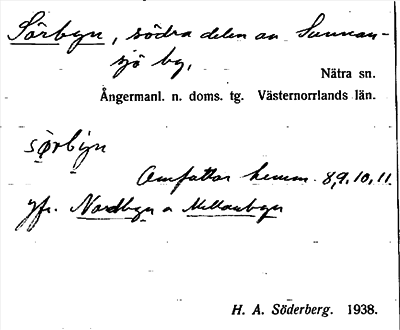 Sörbyn, södra delen av Sunnan-
sjö by,
Nätra sn.
Ångermanl. n. doms. tg. Västernorrlands län.
sörbyn
Omfattar hemm. 8,9,10,11.
jfr. Nordbyn o Mellanbyn
H. A. Söderberg. 1938.